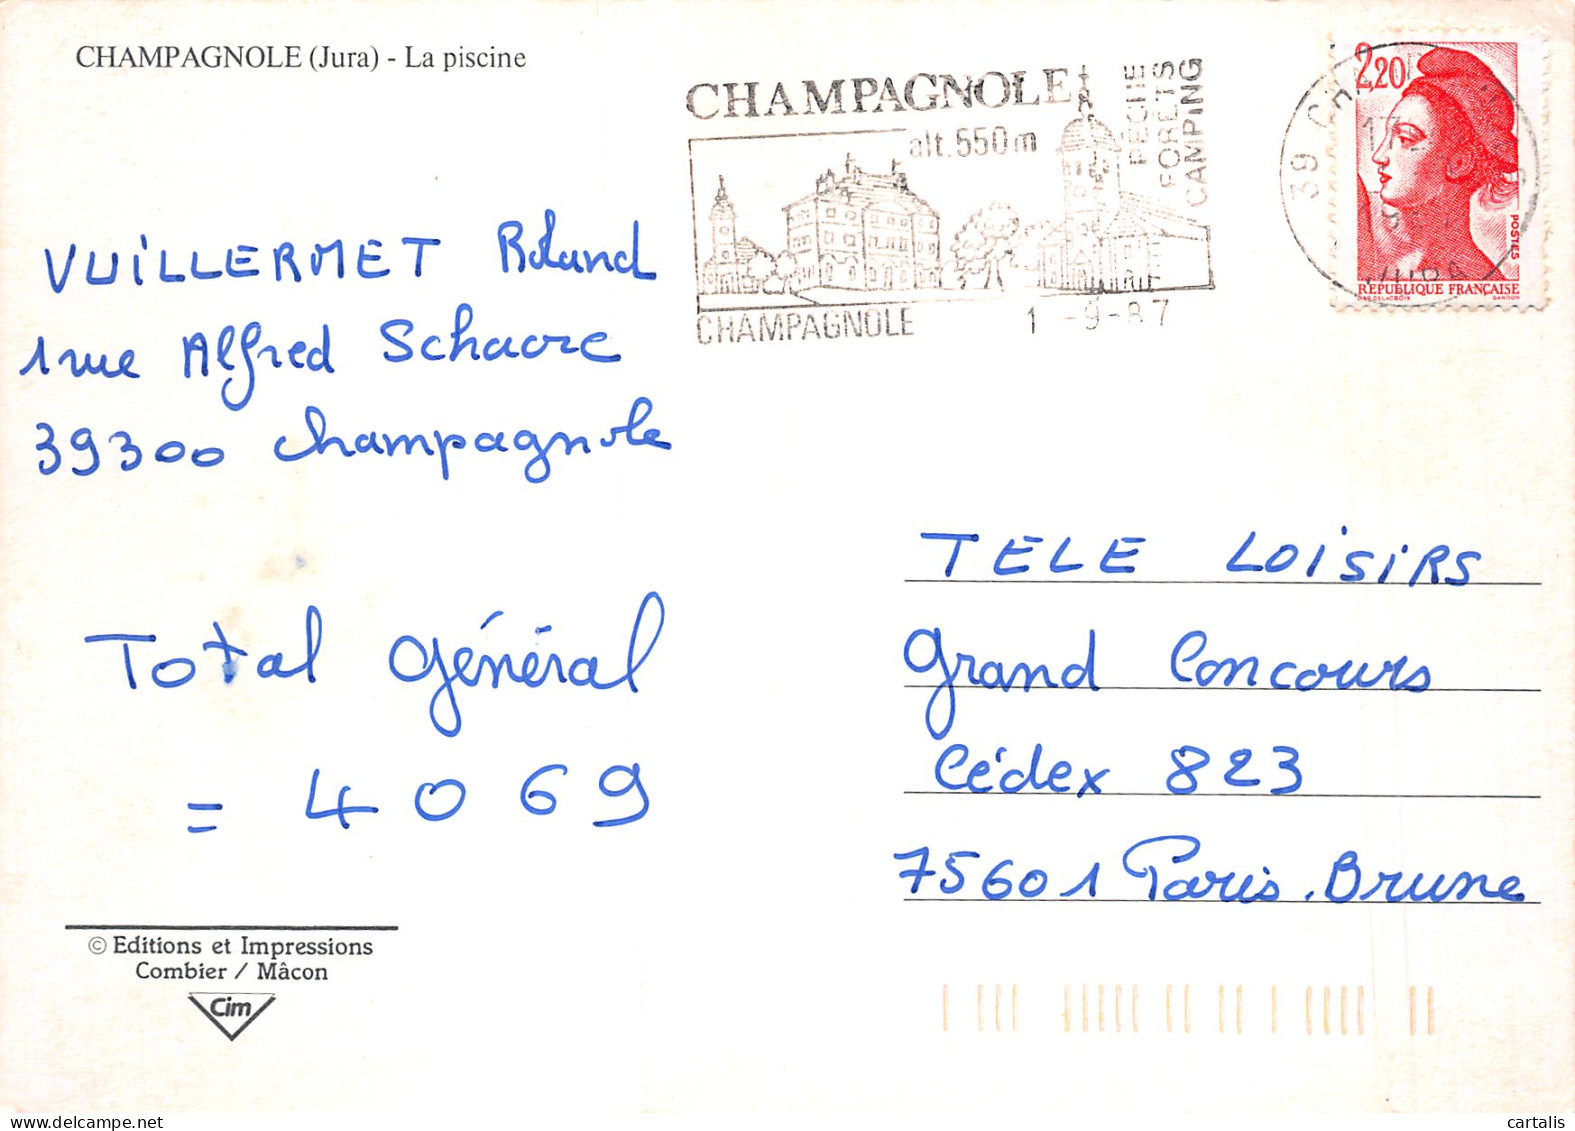 CHAMPAGNOLE (Jura) - La piscine
CHAMPAGNOLE
alt. 550 m
PÊCHE
FORETS
CAMPING
CHAMPAGNOLE
1 -9-87
39
JURA
2,20
POSTES
REPUBLIQUE FRANÇAISE
D'AP. DELACROIX
GANDON
VUiLLERMET Roland
1 rue Alfred
39300 Champagnole
Total général
= 4069
TELE LOiSiRS
Grand Concours
Cédex 823
75601 Paris.Brune
© Editions et Impressions
Combier / Mâcon
Cim
www.delcampe.net
cartalis